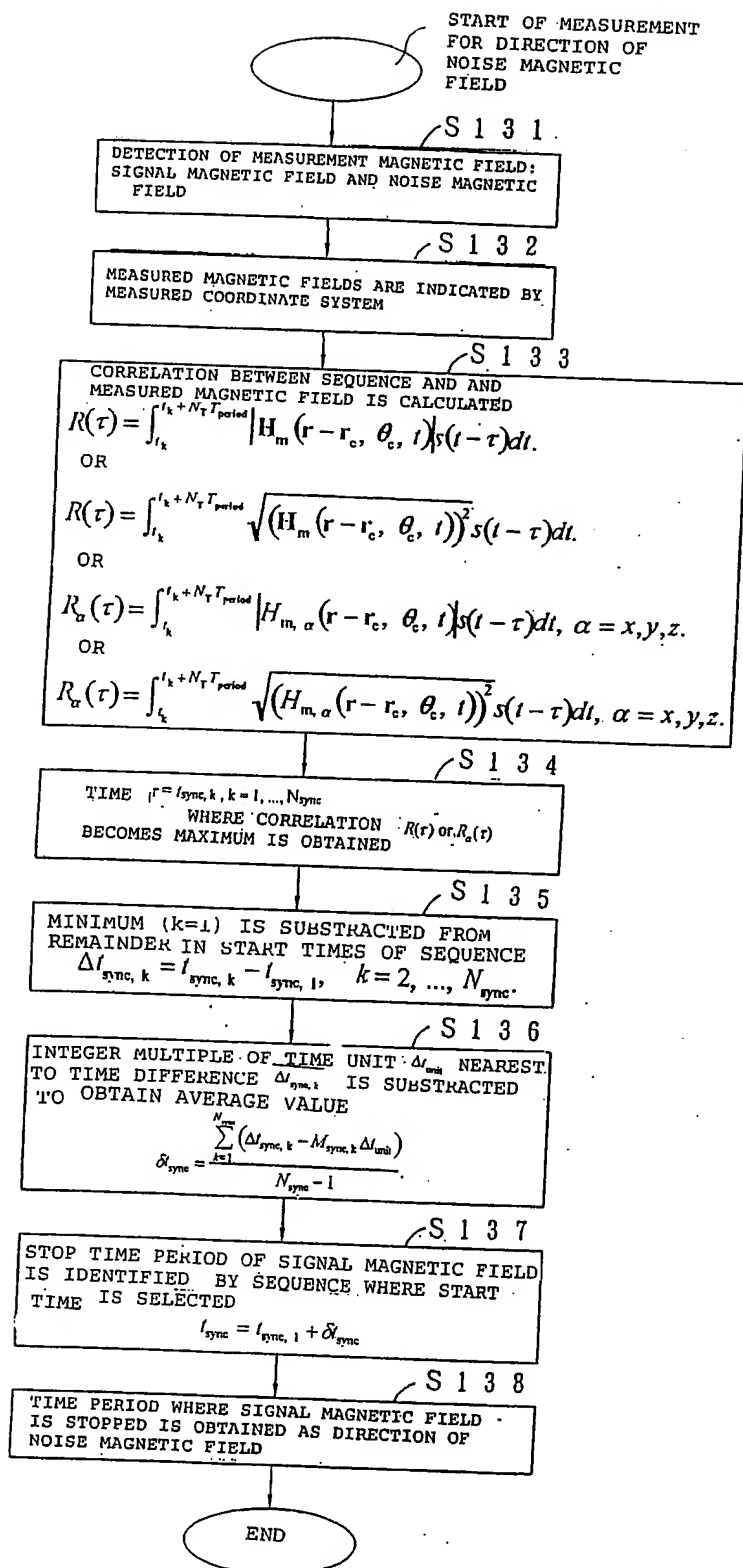 START OF MEASUREMENT
FOR DIRECTION OF
NOISE MAGNETIC
FIELD
S 1 3 1
DETECTION OF MEASUREMENT MAGNETIC FIELD:
SIGNAL MAGNETIC FIELD AND NOISE MAGNETIC
FIELD
S 1 3 2
MEASURED MAGNETIC FIELDS ARE INDICATED BY
MEASURED COORDINATE SYSTEM
S 1 3 3
CORRELATION BETWEEN SEQUENCE AND AND
MEASURED MAGNETIC FIELD IS CALCULATED
R(τ) = ∫_{t_k}^{t_k + N_T T_period} |H_m (r − r_c, θ_c, t)| s(t − τ)dt.
OR
R(τ) = ∫_{t_k}^{t_k + N_T T_period} √(H_m (r − r_c, θ_c, t))² s(t − τ)dt.
OR
R_α(τ) = ∫_{t_k}^{t_k + N_T T_period} |H_{m, α} (r − r_c, θ_c, t)| s(t − τ)dt, α = x,y,z.
OR
R_α(τ) = ∫_{t_k}^{t_k + N_T T_period} √(H_{m, α} (r − r_c, θ_c, t))² s(t − τ)dt, α = x,y,z.
S 1 3 4
TIME τ = t_{sync, k}, k = 1, ..., N_sync
WHERE CORRELATION R(τ) or R_α(τ)
BECOMES MAXIMUM IS OBTAINED
S 1 3 5
MINIMUM (k=1) IS SUBSTRACTED FROM
REMAINDER IN START TIMES OF SEQUENCE
Δt_{sync, k} = t_{sync, k} − t_{sync, 1}, k = 2, ..., N_sync.
S 1 3 6
INTEGER MULTIPLE OF TIME UNIT Δt_unit NEAREST
TO TIME DIFFERENCE Δt_{sync, k} IS SUBSTRACTED
TO OBTAIN AVERAGE VALUE
δt_sync = ∑_{k=1}^{N_sync} (Δt_{sync, k} − M_{sync, k} Δt_unit) / (N_sync − 1)
S 1 3 7
STOP TIME PERIOD OF SIGNAL MAGNETIC FIELD
IS IDENTIFIED BY SEQUENCE WHERE START
TIME IS SELECTED
t_sync = t_{sync, 1} + δt_sync
S 1 3 8
TIME PERIOD WHERE SIGNAL MAGNETIC FIELD
IS STOPPED IS OBTAINED AS DIRECTION OF
NOISE MAGNETIC FIELD
END